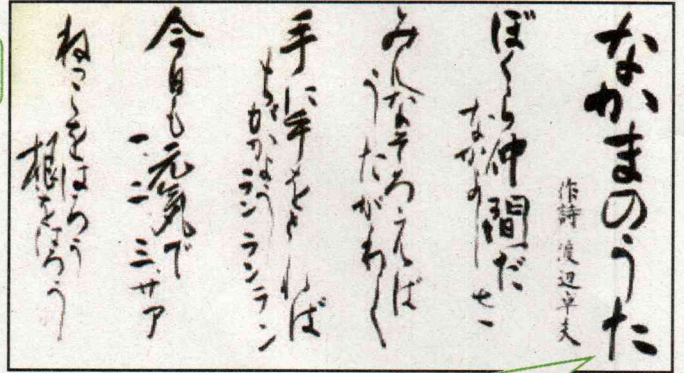 なかまのうた
作詩 渡辺卓夫
ぼくら仲間だ
なかよしせー
みんなそろえば
うたがわく
手に手をとれば
ちがかよう
ランランラン
今日も元気で
一、二、三、サア
ねっこをはろう
根をはろう